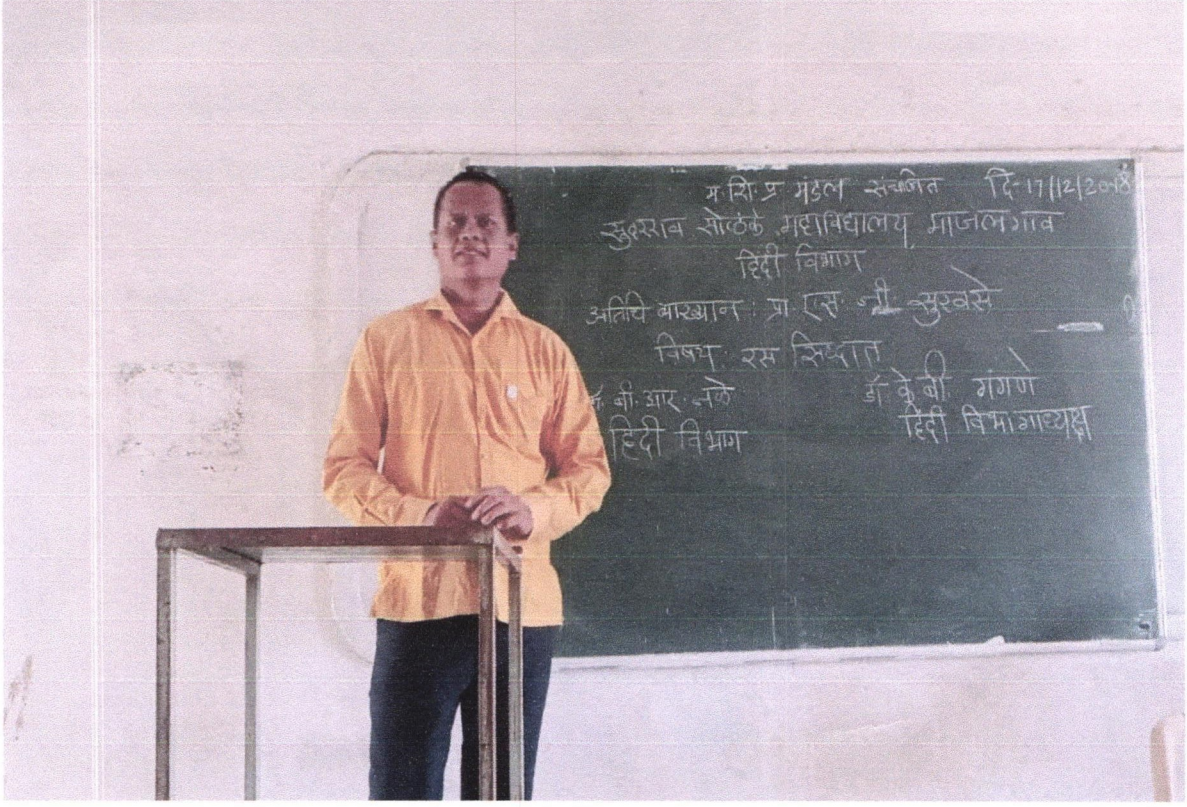 म.शि.प्र मंडल संचलित दि-17/12/2018
सुंदरराव सोळंके महाविद्यालय माजलगाव
हिंदी विभाग
अतिथि व्याख्यान : प्रा एस. जी सुरवसे
विषय : रस सिध्दांत
बी. आर. नळे डॉ के बी गंगणे
हिंदी विभाग हिंदी विभागाध्यक्ष